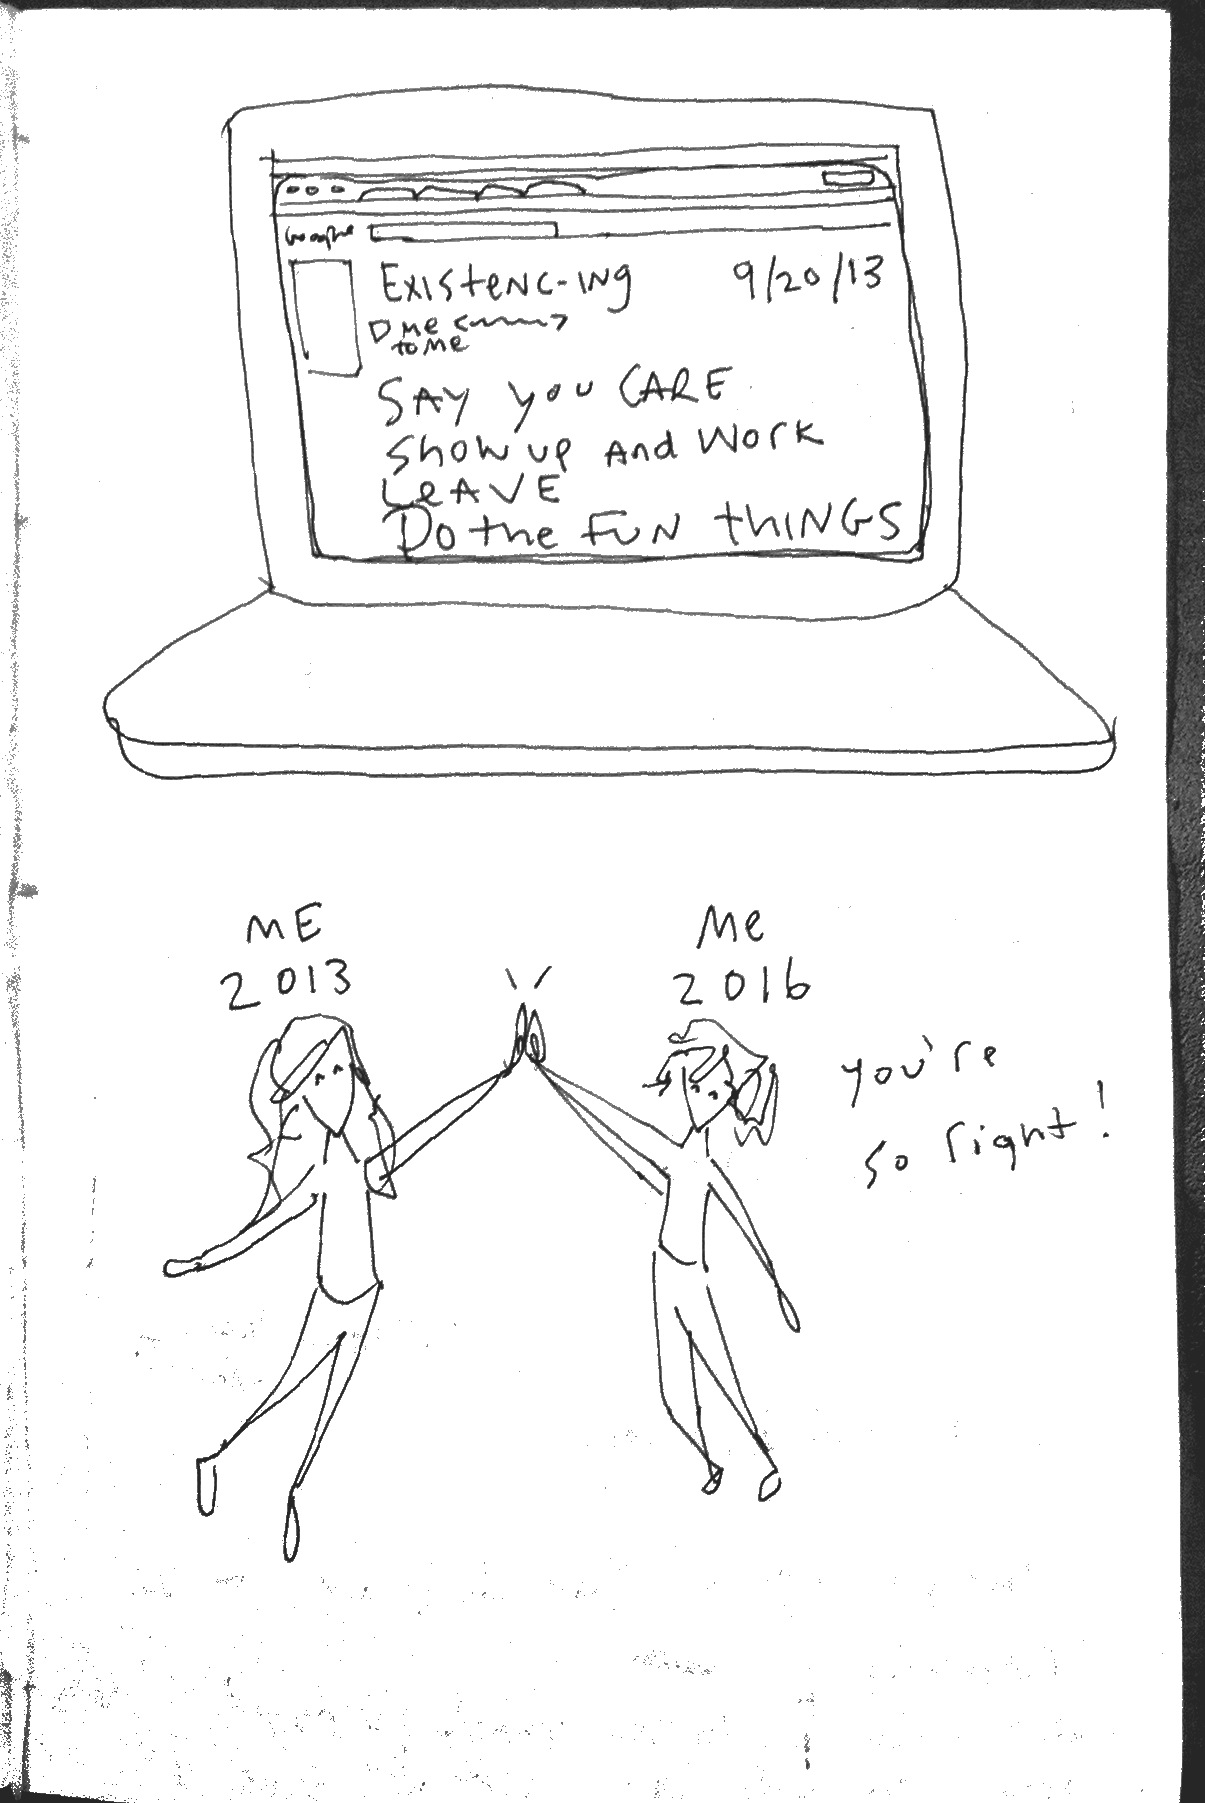 Google
Existenc-ing 9/20/13
Me
to me
SAY you CARE
Show up And Work
LeAVE
Do the FuN thINGS
ME
2013
Me
2016
you're
so right!